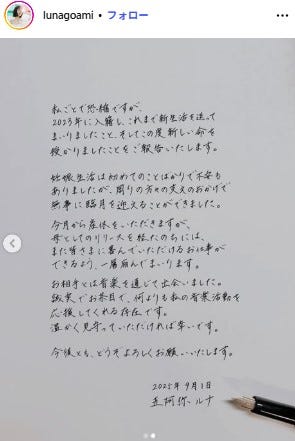 lunagoami • フォロー
私ごとで恐縮ですが、
2023年に入籍し、これまで新生活を送って
まいりましたこと、そしてこの度新しい命を
授かりましたことをご報告いたします。
妊娠生活は初めてのことばかりで不安も
ありましたが、周りの方々の支えのおかげで
無事に臨月を迎えることができました。
今月から産休をいただきますが、
母としてのリリースを経たのちには、
また皆さまに喜んでいただけるお仕事が
できるよう、一層励んでまいります。
お相手とは音楽を通じて出会いました。
誠実でお茶目で、何よりも私の音楽活動を
応援してくれる存在です。
温かく見守っていただければ幸いです。
今後とも、どうぞよろしくお願いいたします。
2025年9月1日
吾阿弥 ルナ